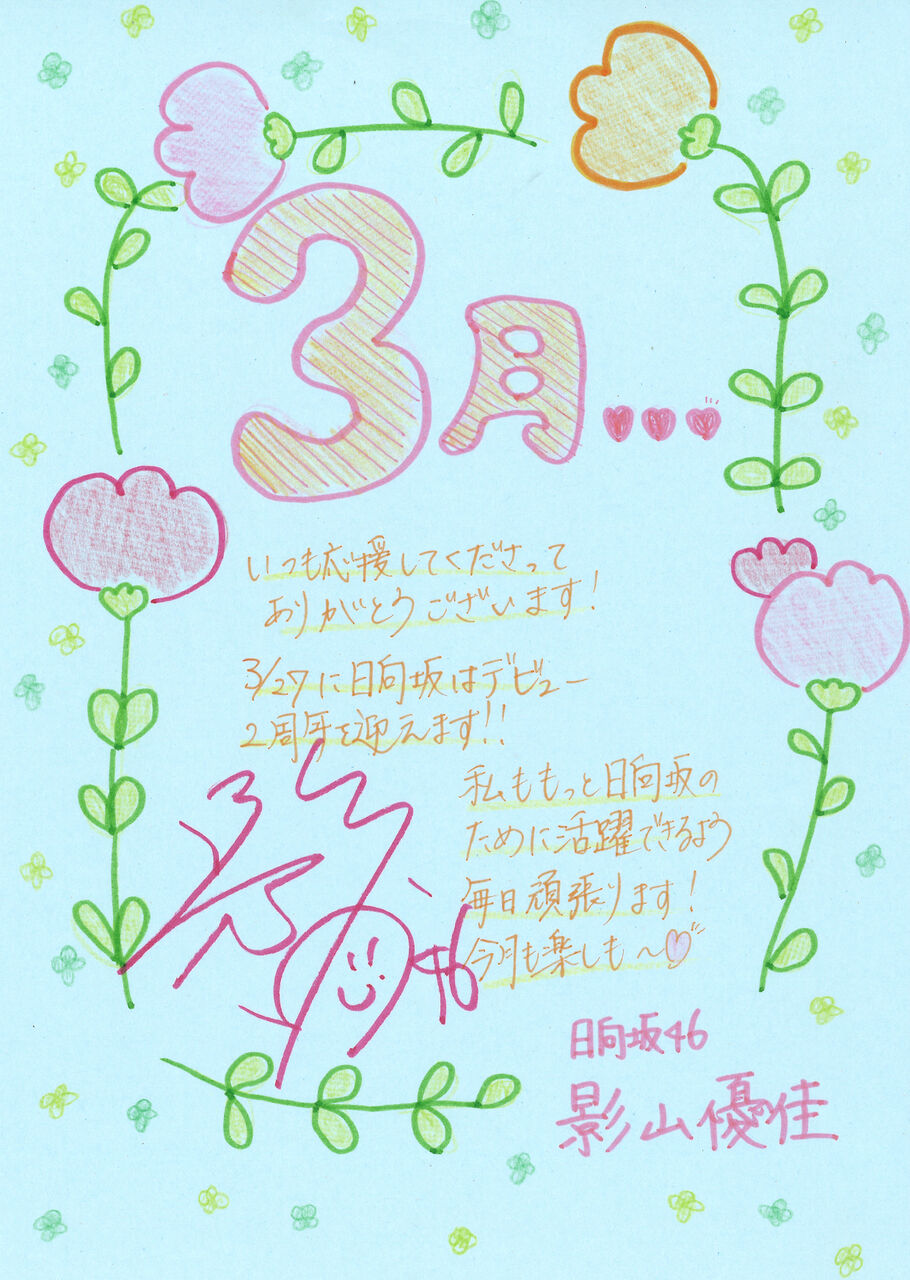 3月...
いつも応援してくださって
ありがとうございます!
3/27に日向坂はデビュー
2周年を迎えます!!
私ももっと日向坂の
ために活躍できるよう
毎日頑張ります!
今月も楽しも〜♡
46
日向坂46
影山優佳